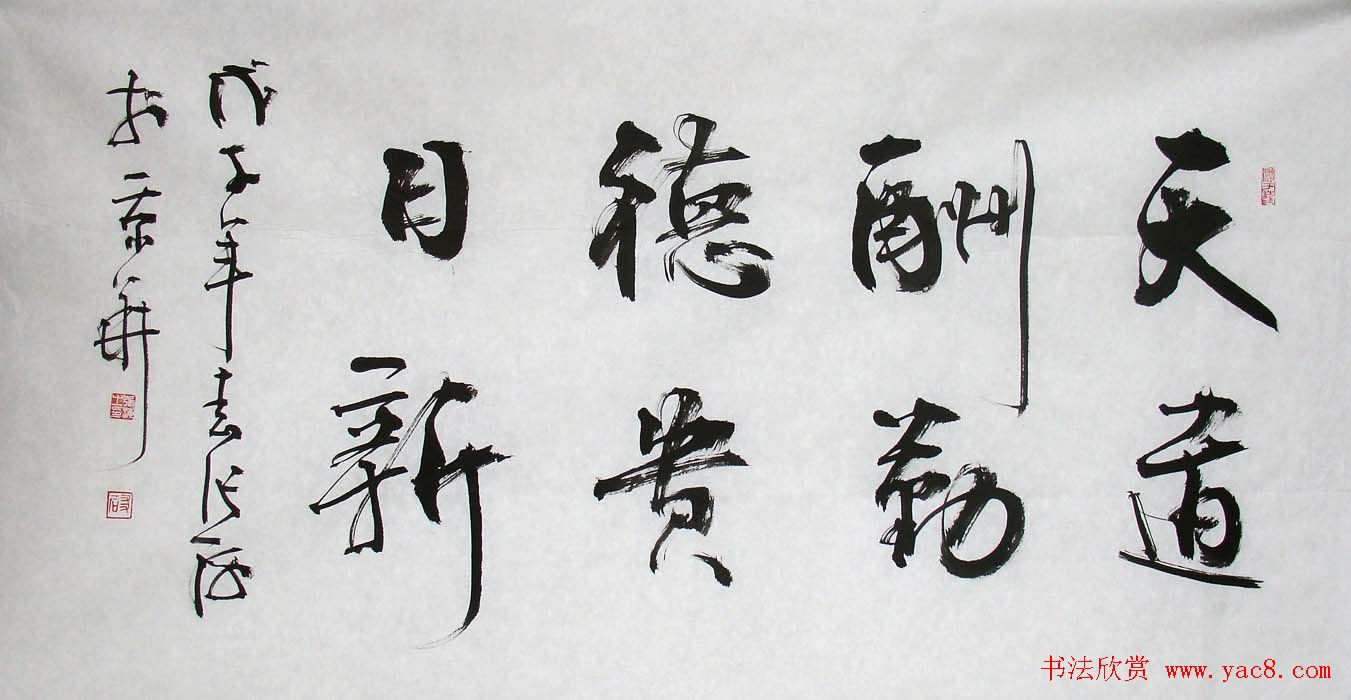 天道
酬勤
德贵
日新
戊子年
於京華
书法欣赏 www.yac8.com